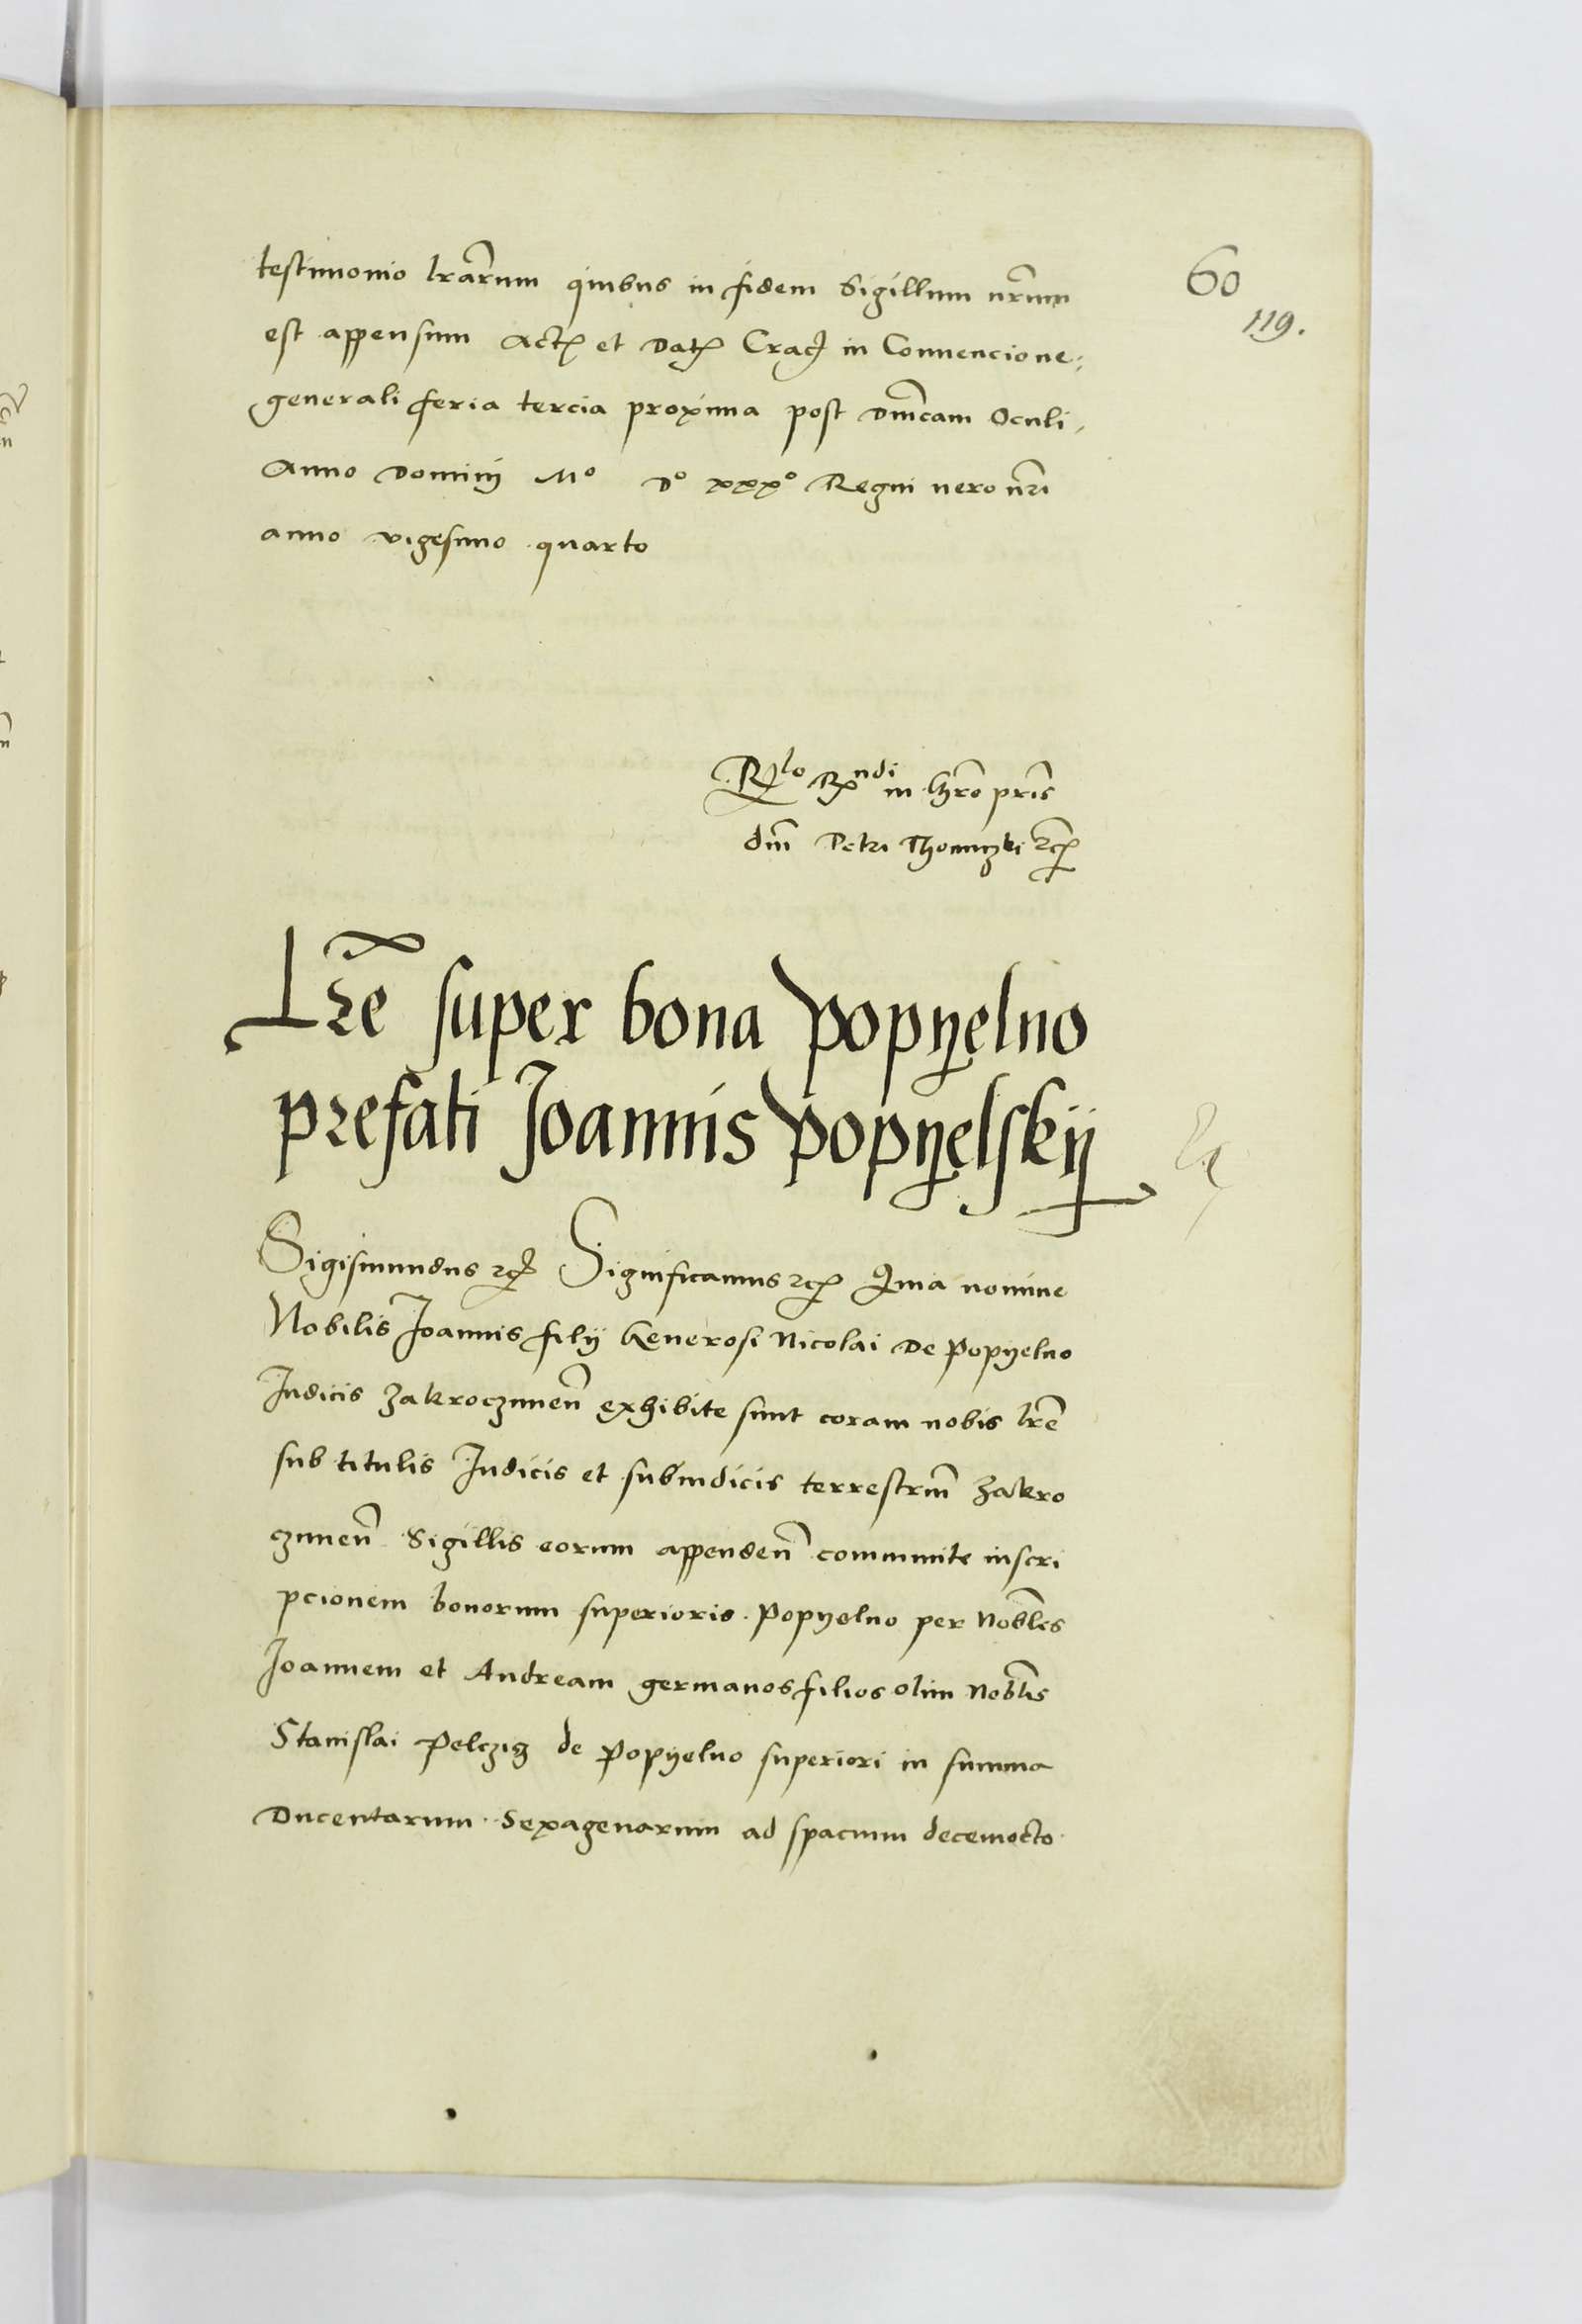 testimonio lrarum quibus in fidem Sigillum nrum
60
119.
est appensum Act et Dat Crac in Convencione
generali feria tercia proxima post Dnicam Oculi
Anno Domini Mº Dº xxxº Regni vero nri
anno vigesimo quarto
Rlo Rndi in Chro pris
dni Petri Thomiczki etc
Lre super bona Popyelno
prefati Joannis Popyelskij
Sigismundus etc Significamus etc Quia nomine
Nobilis Joannis filij Generosi Nicolai de Popyelno
Iudicis Zakroczimen exhibite sunt coram nobis lre
sub titulis Iudicis et subiudicis terrestrium Zakro
czimen Sigillis eorum appenden communite inscri
pcionem bonorum superioris Popyelno per Nobles
Joannem et Andream germanos filios olim Noblis
Stanislai Pelczig de Popyelno superiori in summa
Ducentarum Sexagenarum ad spacium decemocto